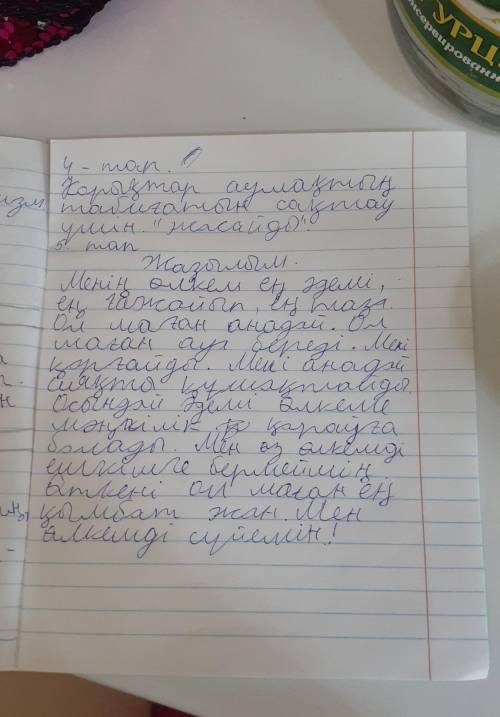 УРЦ
консервированны
4 - тап.
Қорықтар аумақтың
табиғатын сақтау
үшін "жасайды".
5 тап
Жазылым.
Менің өлкем ең әдемі,
ең ғажайып, ең таза.
Ол маған анадай. Ол
маған ауа береді. Мені
қорғайды. Мені анадай
сияқты құшақтайды.
Осындай әдемі өлкеме
мәңгілік қарауға
болады. Мен өз өлкемді
ешкімге бермеймін
өткені ол маған ең
қымбат жан. Мен
өлкемді сүйемін!